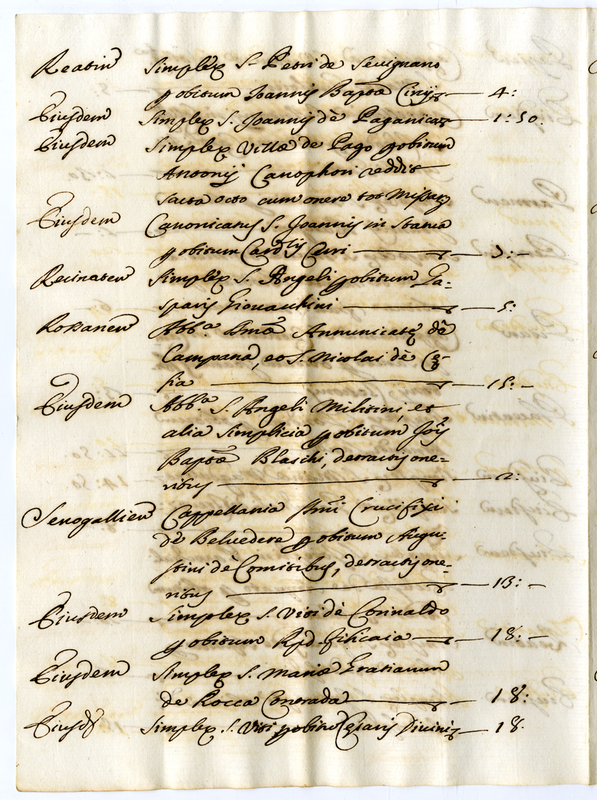 Reatin Simplex S. Petri de Sevignano
p obitum Joannis Bapta Cinij — 4:
Eiusdem Simplex S. Joannis de Paganica — 1:50
Eiusdem Simplex Villæ de Pago p obitum
Antonij Canophori reddit
scuta octo cum onere tot Missar
Eiusdem Canonicatus S. Joannis in Statua
p obitum Caroli Curi — 3:—
Recinaten Simplex S. Angeli p obitum Ga-
sparis Giovachini — 5:
Rossanen Abb.a Smæ Annunciatæ de
Campana, et S. Nicolai de
— 15:—
Eiusdem Abb.a S. Angeli Militini, et
alia simplicia p obitum Jois
Baptæ Blaschi, detractis one-
ribus — 2:
Senogallien Cappellania Smi Crucifixi
de Belvedere p obitum Augu-
stini de Comitibus, detractis one-
ribus — 13:—
Eiusdem Simplex S. Viti de Corinaldo
p obitum Rpd. Filicaia — 18:—
Eiusdem Simplex S. Mariæ Gratianum
de Rocca Contrada — 18:
Eiusd Simplex S. Viti p obitu Cesaris Divini — 18.